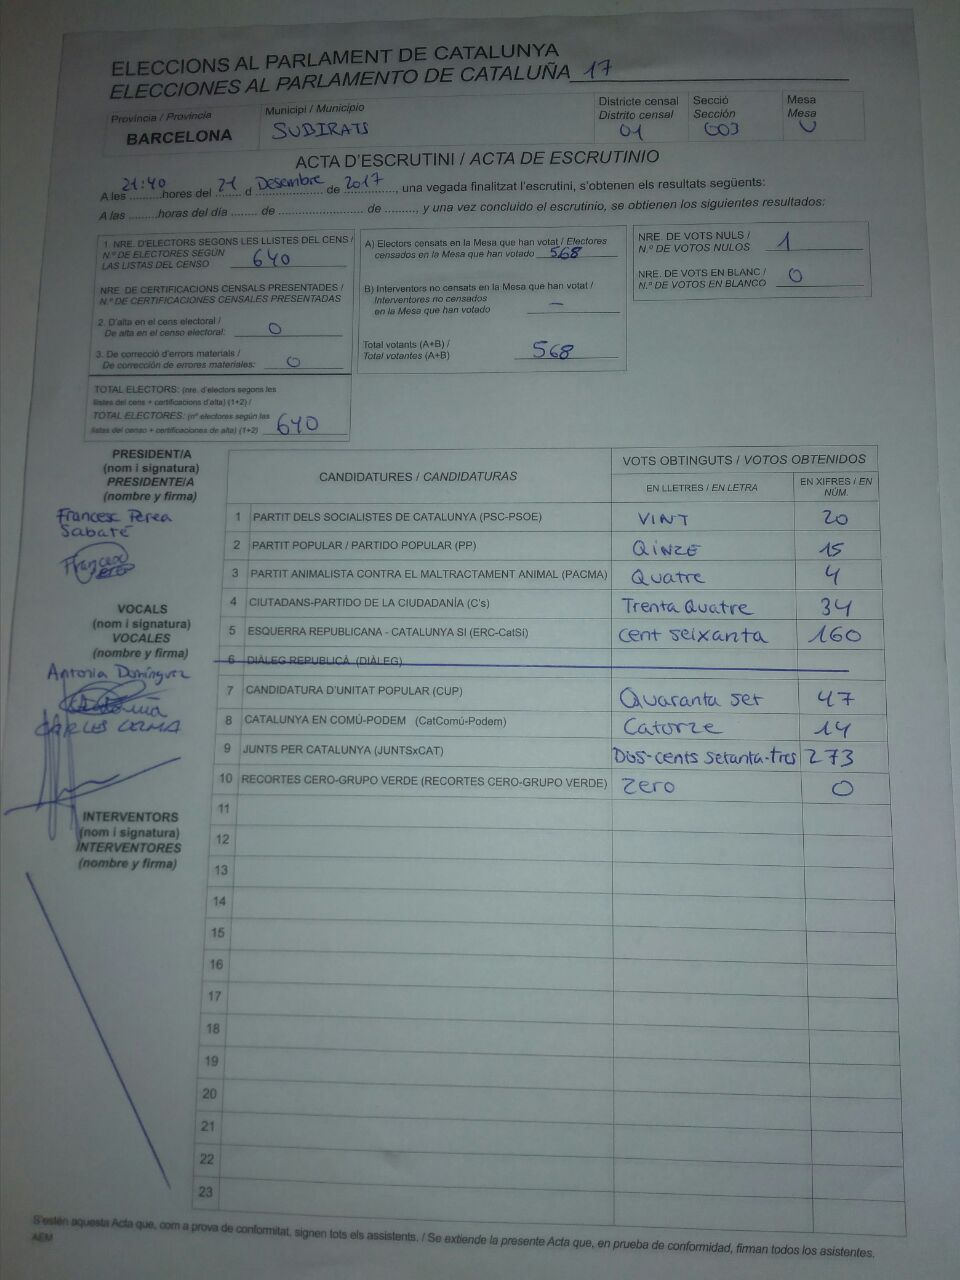 ELECCIONS AL PARLAMENT DE CATALUNYA
ELECCIONES AL PARLAMENTO DE CATALUÑA 17
Província / Provincia
BARCELONA
Municipi / Municipio
SUBIRATS
Districte censal
Distrito censal
01
Secció
Sección
003
Mesa
Mesa
U
ACTA D'ESCRUTINI / ACTA DE ESCRUTINIO
A les 21:40 hores del 21 d Desembre de 2017, una vegada finalitzat l'escrutini, s'obtenen els resultats següents:
A las .........horas del día ....... de ........................ de ........, y una vez concluido el escrutinio, se obtienen los siguientes resultados:
1. NRE. D'ELECTORS SEGONS LES LLISTES DEL CENS /
N.º DE ELECTORES SEGÚN
LAS LISTAS DEL CENSO 640
NRE. DE CERTIFICACIONS CENSALS PRESENTADES /
N.º DE CERTIFICACIONES CENSALES PRESENTADAS
2. D'alta en el cens electoral /
De alta en el censo electoral: 0
3. De correcció d'errors materials /
De corrección de errores materiales: 0
TOTAL ELECTORS: (nre. d'electors segons les
llistes del cens + certificacions d'alta) (1+2) /
TOTAL ELECTORES: (nº electores según las
listas del censo + certificaciones de alta) (1+2) 640
A) Electors censats en la Mesa que han votat / Electores
censados en la Mesa que han votado 568
B) Interventors no censats en la Mesa que han votat /
Interventores no censados
en la Mesa que han votado —
Total votants (A+B) /
Total votantes (A+B) 568
NRE. DE VOTS NULS /
N.º DE VOTOS NULOS 1
NRE. DE VOTS EN BLANC /
N.º DE VOTOS EN BLANCO 0
PRESIDENT/A
(nom i signatura)
PRESIDENTE/A
(nombre y firma)
Francesc Perea
Sabaté
Francesc
VOCALS
(nom i signatura)
VOCALES
(nombre y firma)
Antonia Domínguez
CARLES
INTERVENTORS
(nom i signatura)
INTERVENTORES
(nombre y firma)
CANDIDATURES / CANDIDATURAS
VOTS OBTINGUTS / VOTOS OBTENIDOS
EN LLETRES / EN LETRA
EN XIFRES / EN NÚM.
1 PARTIT DELS SOCIALISTES DE CATALUNYA (PSC-PSOE) VINT 20
2 PARTIT POPULAR / PARTIDO POPULAR (PP) QINZE 15
3 PARTIT ANIMALISTA CONTRA EL MALTRACTAMENT ANIMAL (PACMA) Quatre 4
4 CIUTADANS-PARTIDO DE LA CIUDADANÍA (C's) Trenta Quatre 34
5 ESQUERRA REPUBLICANA - CATALUNYA SÍ (ERC-CatSí) cent seixanta 160
6 DIÀLEG REPUBLICÀ (DIÀLEG)
7 CANDIDATURA D'UNITAT POPULAR (CUP) Quaranta set 47
8 CATALUNYA EN COMÚ-PODEM (CatComú-Podem) Catorze 14
9 JUNTS PER CATALUNYA (JUNTSxCAT) Dos-cents setanta-tres 273
10 RECORTES CERO-GRUPO VERDE (RECORTES CERO-GRUPO VERDE) Zero 0
11
12
13
14
15
16
17
18
19
20
21
22
23
S'estén aquesta Acta que, com a prova de conformitat, signen tots els assistents. / Se extiende la presente Acta que, en prueba de conformidad, firman todos los asistentes.
AEM